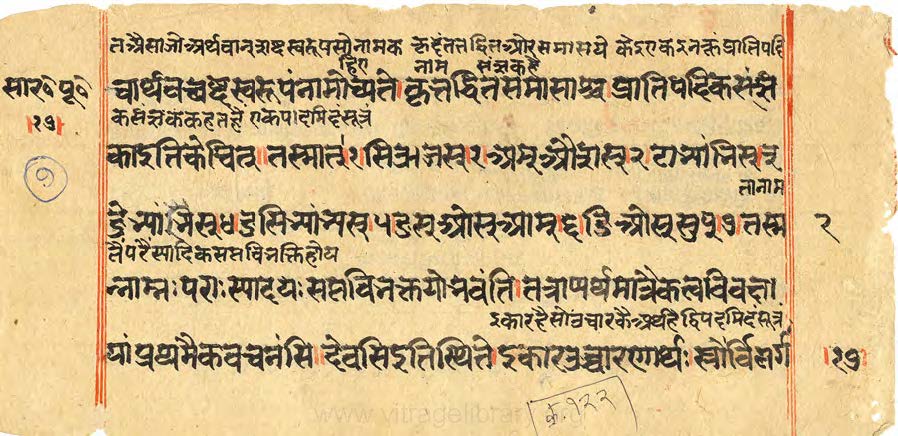 तञ्जैसाजो अर्थवान् अष्टस्वरूपसोनामक कृदंततद्धितऔरसमासये केइएकइनकुंप्रातिपदि
हिए नाम संज्ञकहै
सार॰ पू॰
चार्थवच्चष्टस्वरूपंनामोच्यते कृत्तद्धितसमासाश्च प्रातिपदिकसंज्ञ
कसंज्ञककहतहै एकपादमिदंसूत्रं
।१७।
काइतिकेचित् तस्मात् १ सिऔजस् १ अम्औशस् २ टाभ्यांभिस् ३
तानाम
ङेभ्यांभिस् ४ ङसिभ्यांभ्यस् ५ ङस्ओस्आम् ६ ङिओस्सुप् ७ तस्मा
२
तैपरेस्यादिकसप्तविभक्तिहोय
न्नाम्नः पराः स्यादयः सप्तविभक्तयोभवंति तत्रापर्थमात्रैकत्वविवक्षा
इकारहैसोउच्चारकैअर्थहै द्विपदमिदंसूत्रं
यांप्रथमैकवचनंसि देवसिइतिस्थिते इकारउच्चारणार्थः स्रोर्विसर्ग
।१७
www.vitragelibrary.org
क्र. १२२